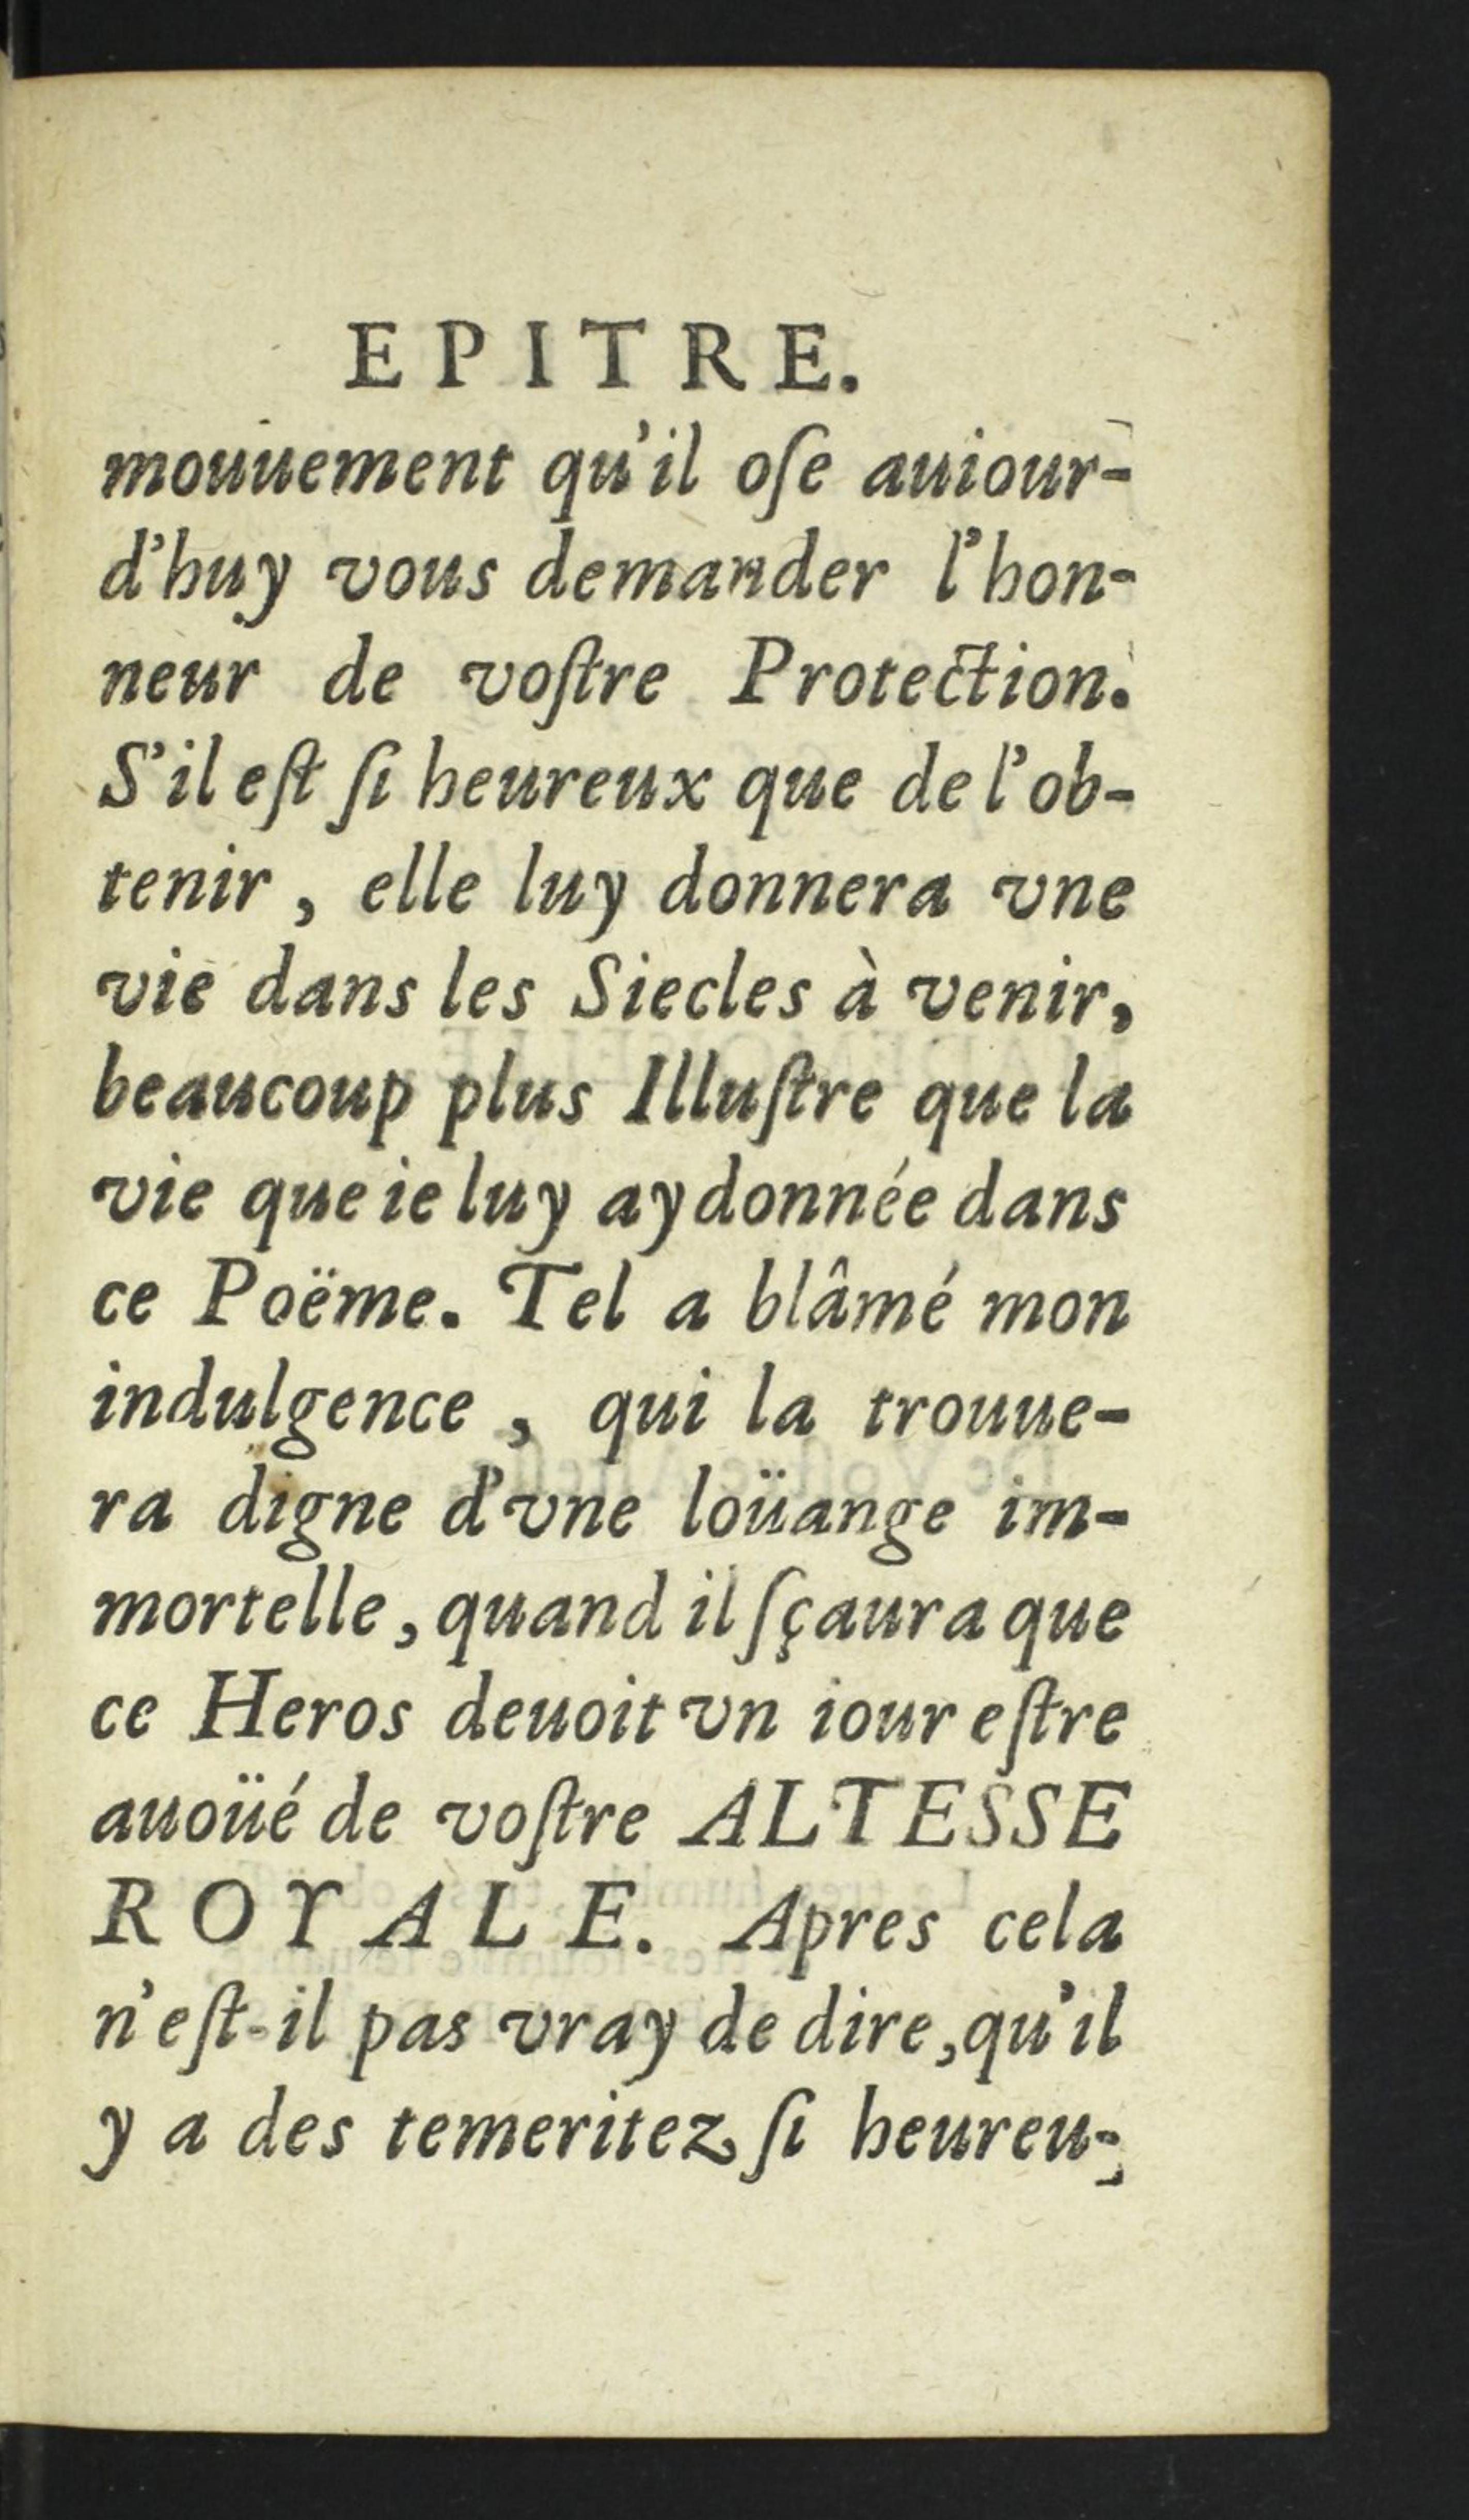 EPITRE.
mouuement qu'il oſe auiour-
d'huy vous demander l'hon-
neur de voſtre Protection.
S'il eſt ſi heureux que de l'ob-
tenir, elle luy donnera vne
vie dans les Siecles à venir,
beaucoup plus Illuſtre que la
vie que ie luy ay donnée dans
ce Poëme. Tel a blâmé mon
indulgence, qui la trouue-
ra digne d'vne loüange im-
mortelle, quand il ſçaura que
ce Heros deuoit vn iour eſtre
auoüé de voſtre ALTESSE
ROYALE. Apres cela
n'eſt-il pas vray de dire, qu'il
y a des temeritez ſi heureu-